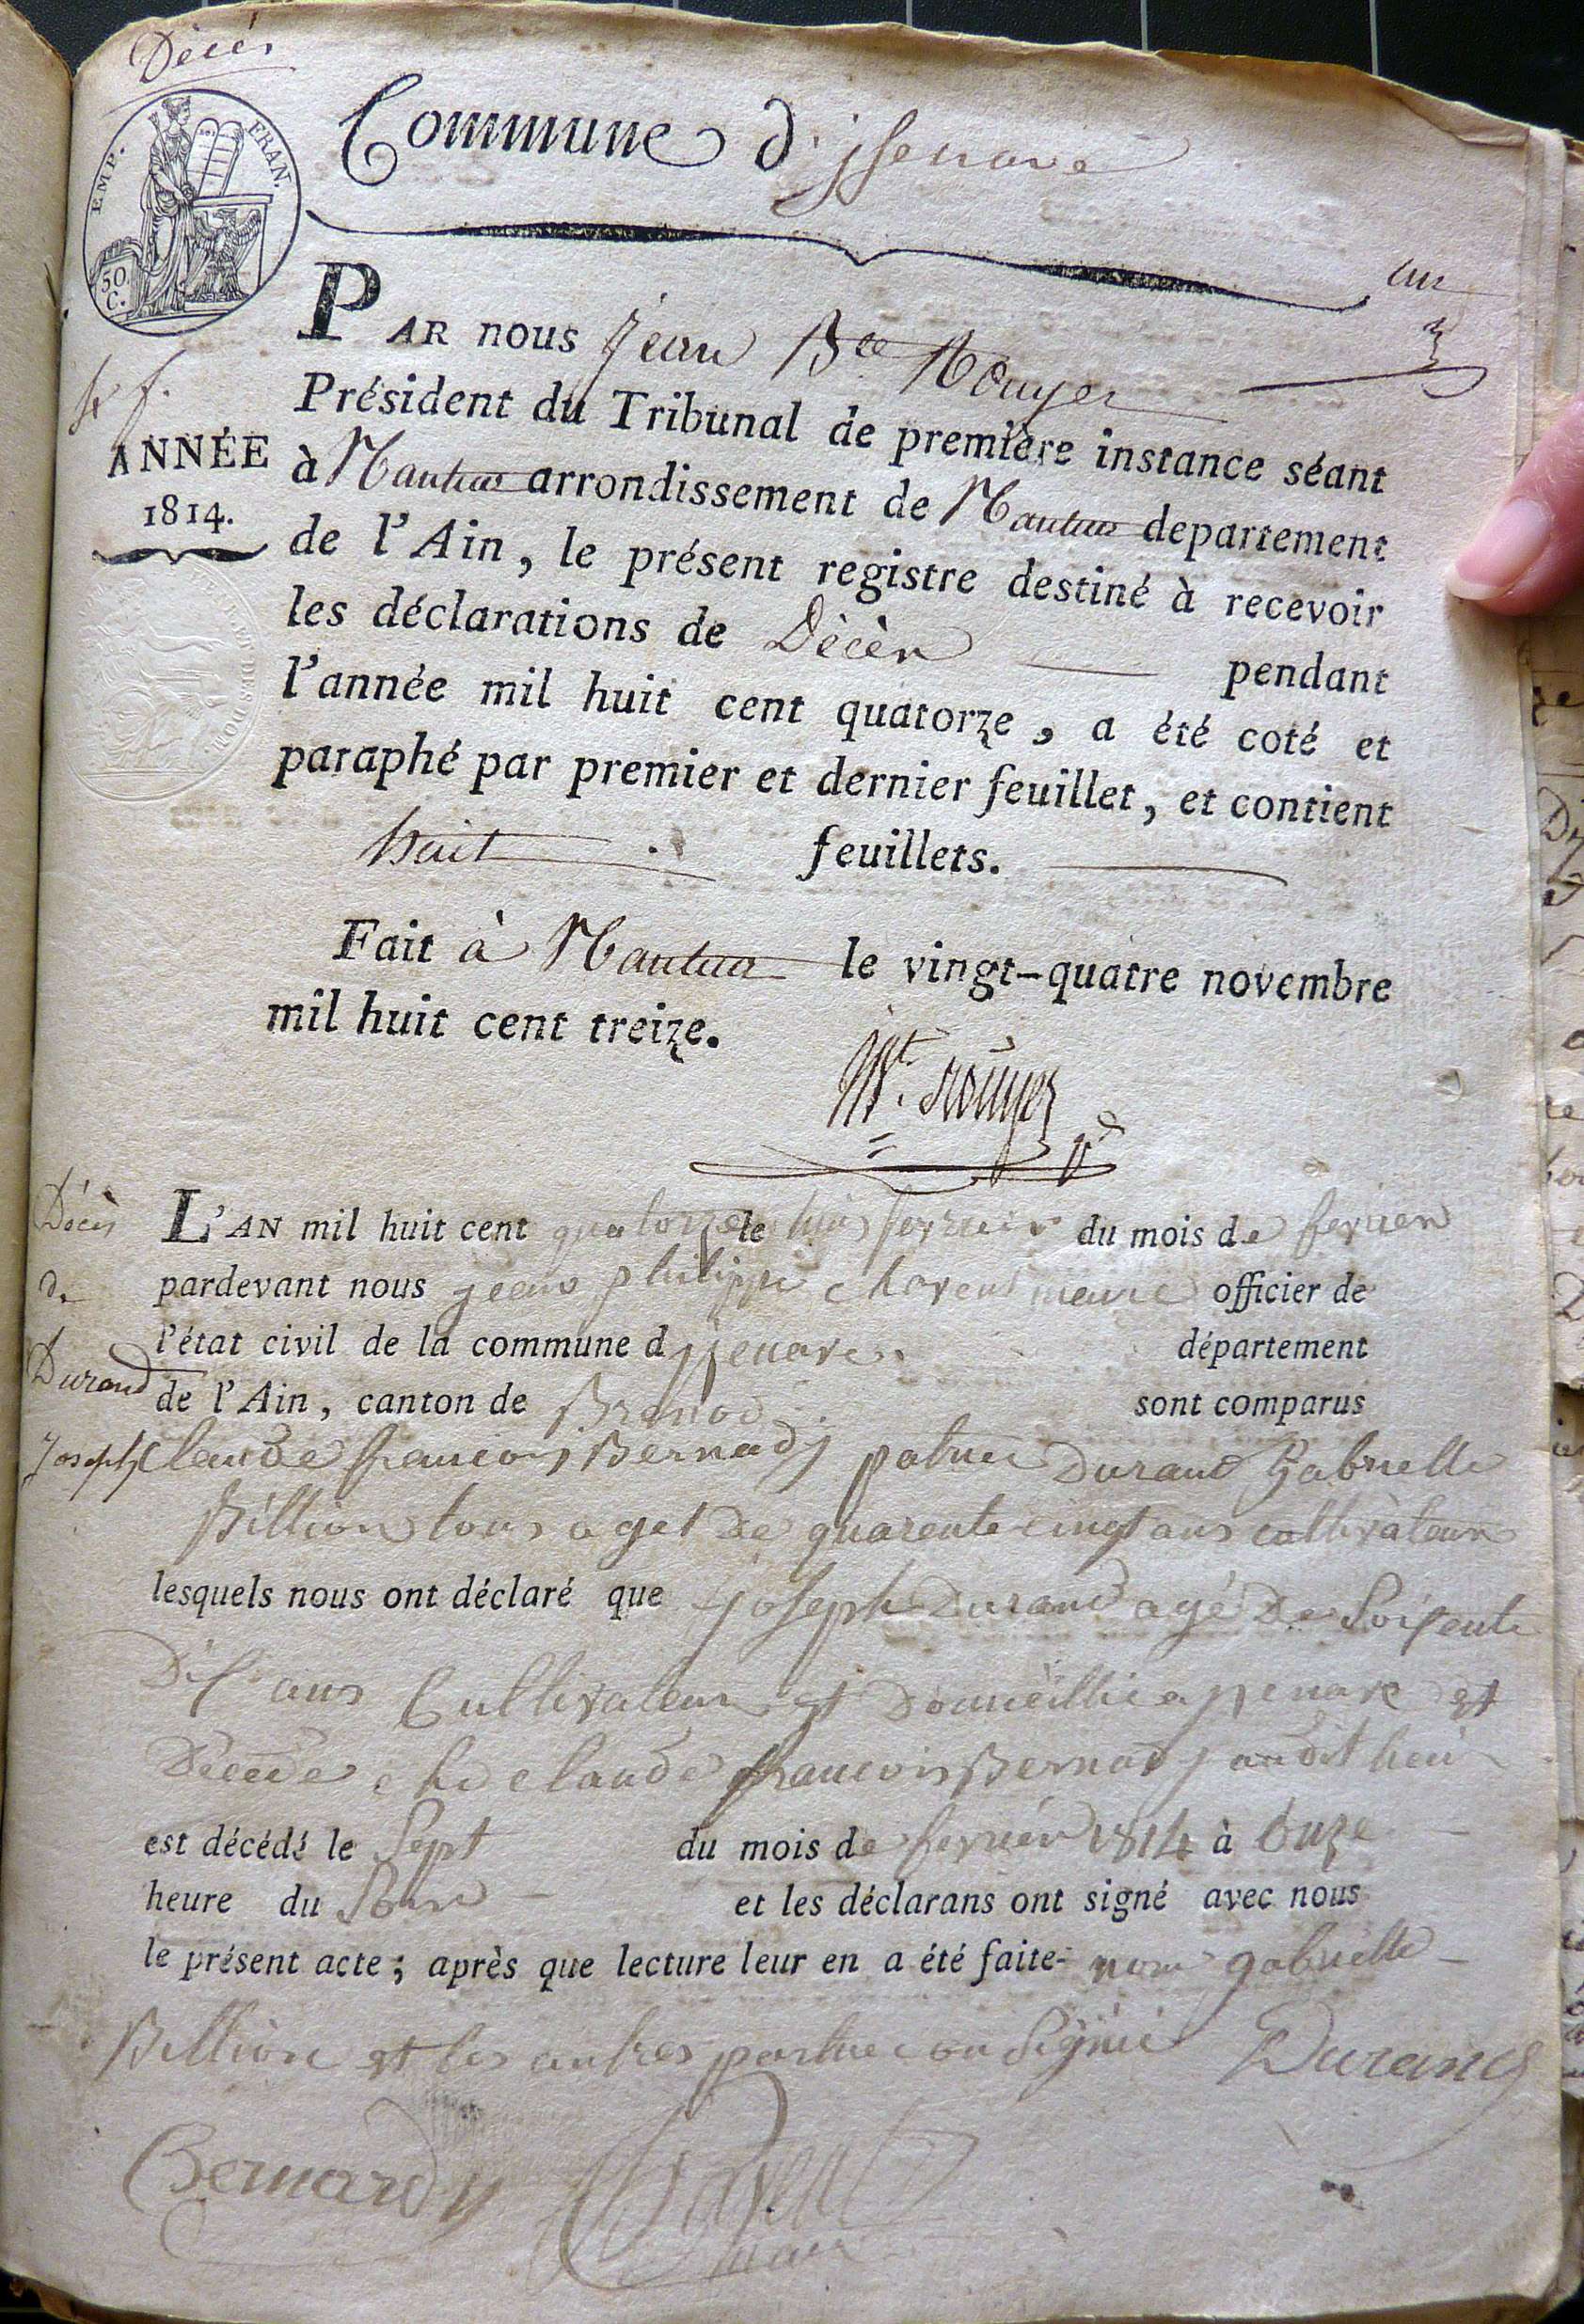 Décès
EMP. FRAN.
50. C.
Commune d'issenave
un
PAR nous jean Bte Rouyer
Président du Tribunal de première instance séant
ANNÉE
1814.
à Nantua arrondissement de Nantua departement
de l'Ain, le présent registre destiné à recevoir
les déclarations de Décès pendant
l'année mil huit cent quatorze, a été coté et
paraphé par premier et dernier feuillet, et contient
huit feuillets.
Fait à Nantua le vingt-quatre novembre
mil huit cent treize.
Rouyer
Décès
de
Durand
Joseph
L'AN mil huit cent quatorze le huit fevrier du mois de fevrier
pardevant nous jean philippe chavent maire officier de
l'état civil de la commune d issenave département
de l'Ain, canton de Brenod sont comparus
Claude francois Bernady patrice Durand Gabrielle
Billion tous aget de quarente cinqt ans cultivateur
lesquels nous ont déclaré que joseph Durand agé De Soisente
Dis ans Cultivateur et Domeillié a issenave et
Decede ché claude francois Bernady audit lieu
est décédé le Sept du mois de fevrier 1814 à Onze
heure du Soir et les déclarans ont signé avec nous
le présent acte; après que lecture leur en a été faite- non gabrielle
Billion et les autres partie on Signié Durand
Bernardy Chavent
maire